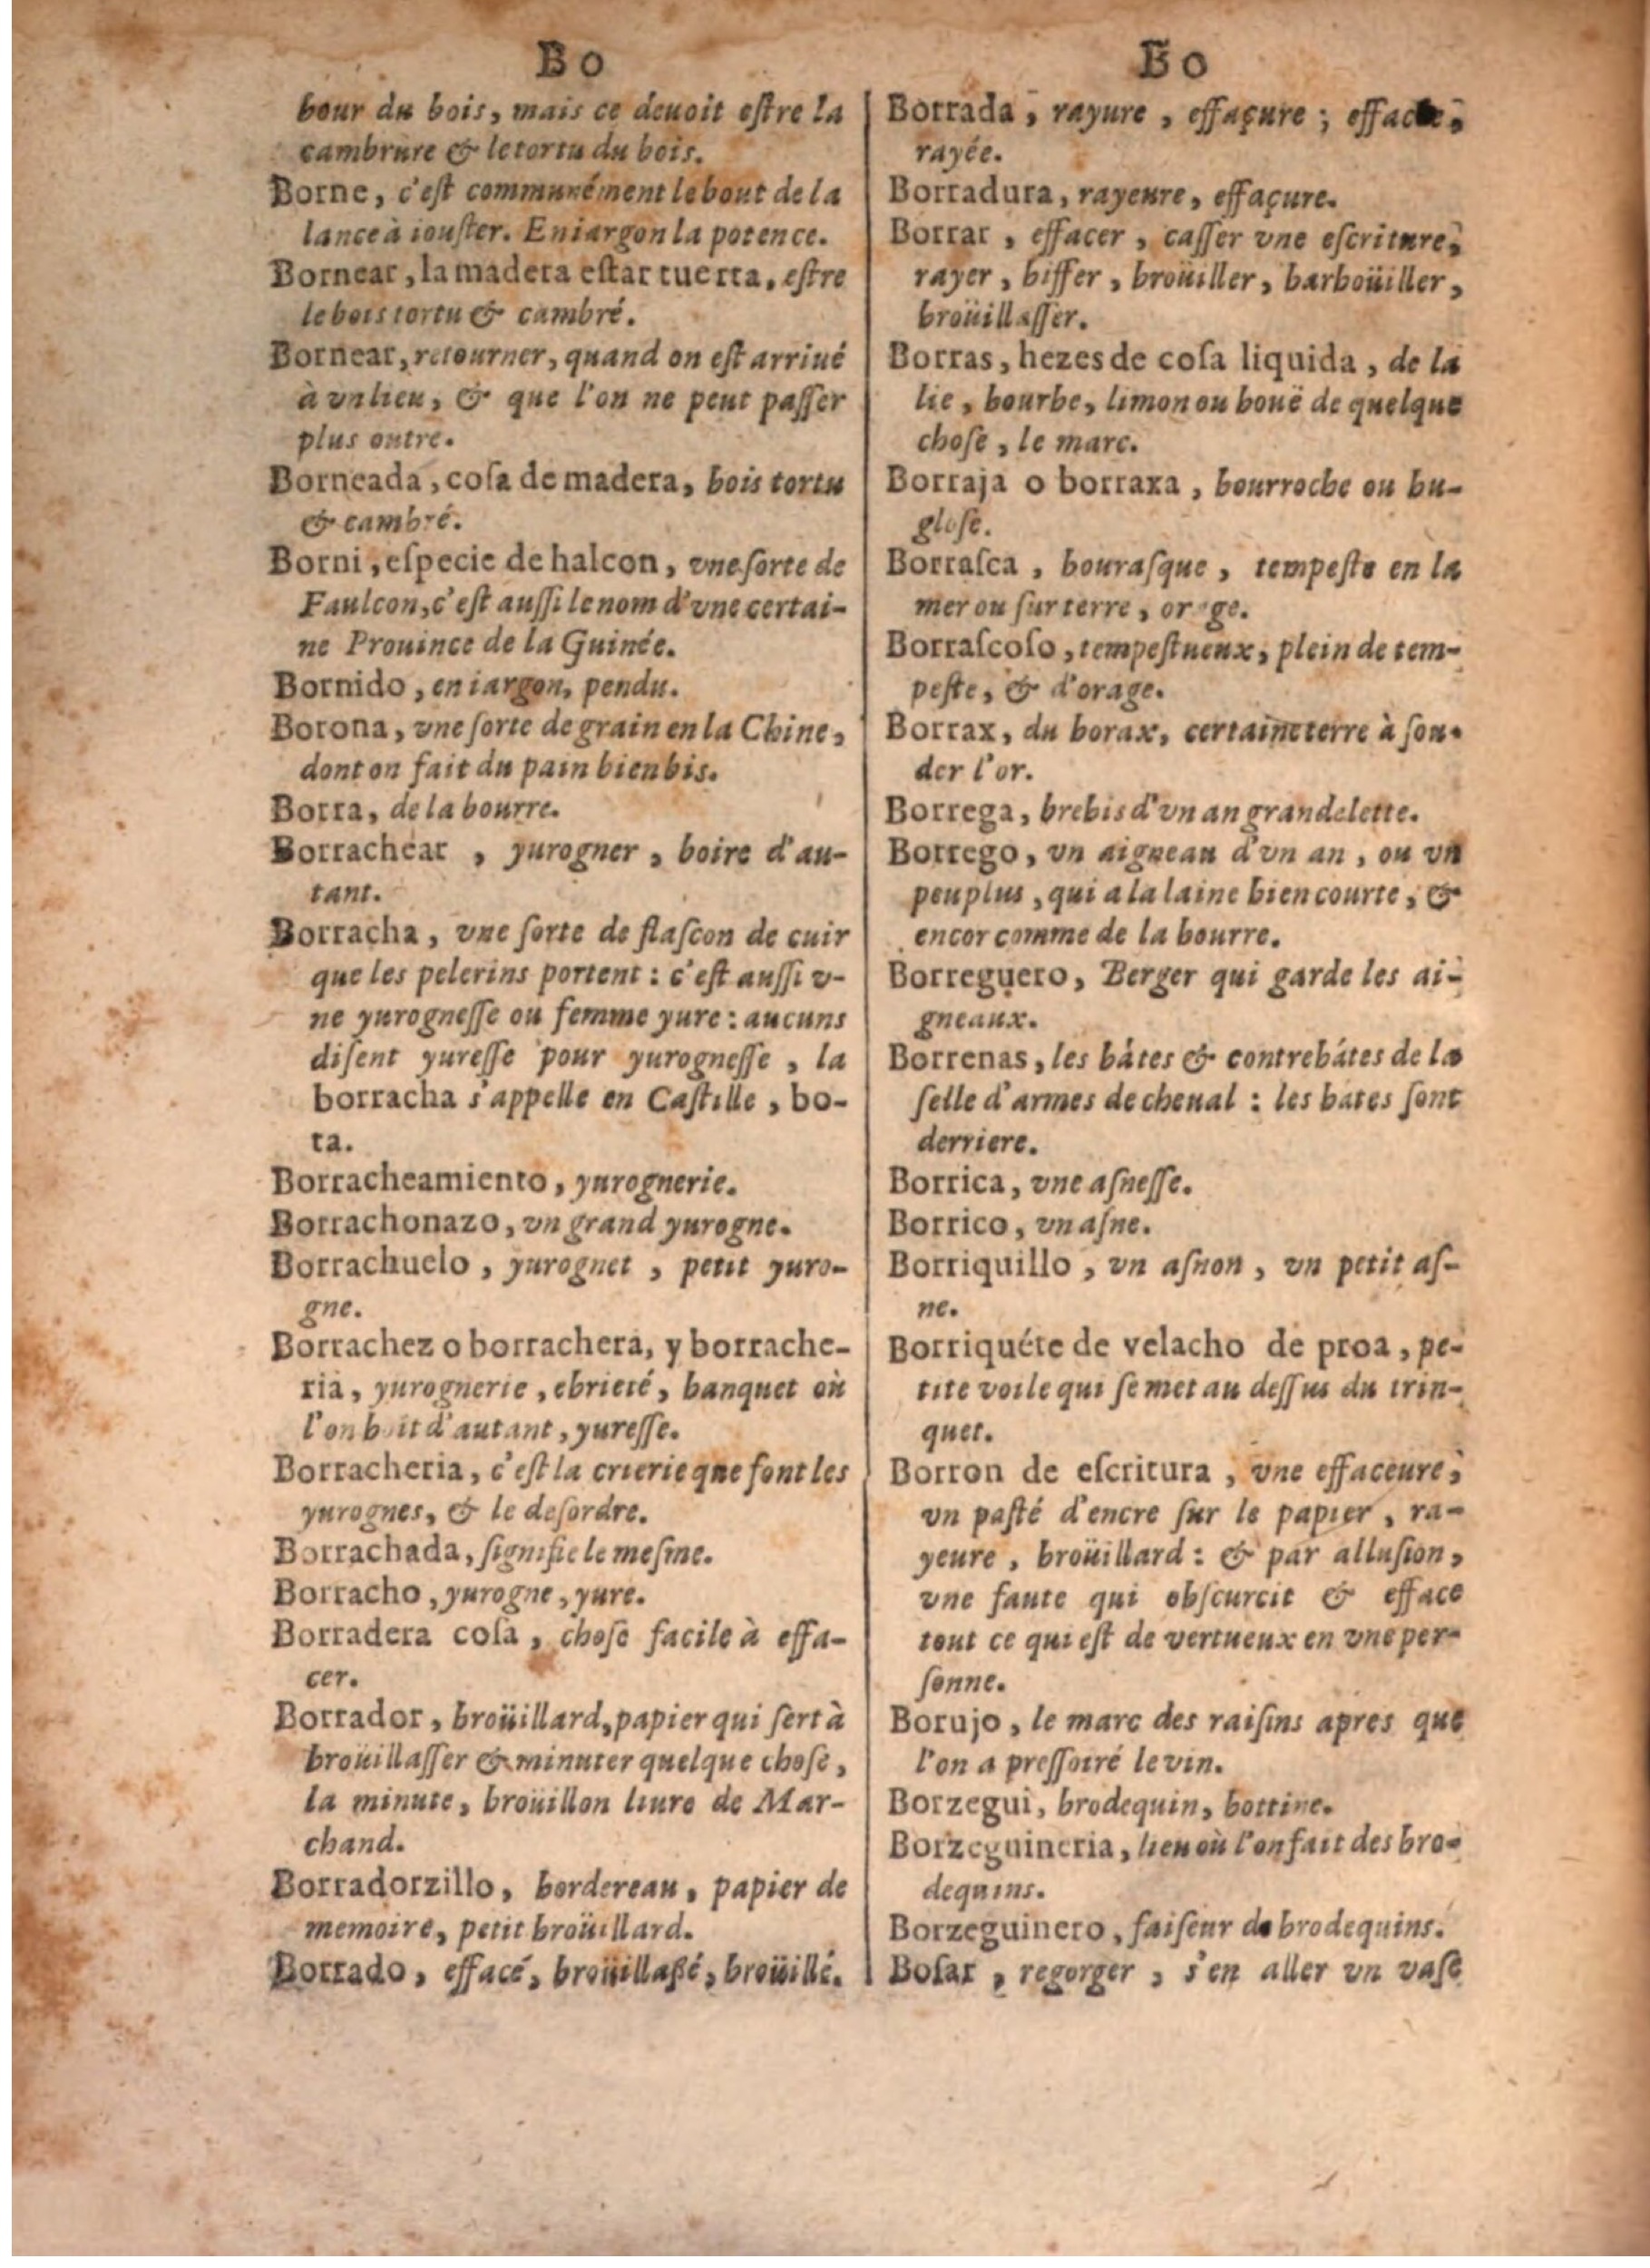 Bo
bour du bois, mais ce deuoit eſtre la
cambrure & le tortu du bois.
Borne, c'eſt communément le bout de la
lance à iouſter. En iargon la potence.
Bornear, la madera eſtar tuerta, eſtre
le bois tortu & cambré.
Bornear, retourner, quand on eſt arriué
à vn lieu, & que l'on ne peut paſſer
plus outre.
Borneada, coſa de madera, bois tortu
& cambré.
Borni, eſpecie de halcon, vne ſorte de
Faulcon, c'eſt auſſi le nom d'vne certai-
ne Prouince de la Guinée.
Bornido, en iargon, pendu.
Borona, vne ſorte de grain en la Chine,
dont on fait du pain bien bis.
Borra, de la bourre.
Borrachear, yurogner, boire d'au-
tant.
Borracha, vne ſorte de flaſcon de cuir
que les pelerins portent : c'eſt auſſi v-
ne yurogneſſe ou femme yure : aucuns
diſent yureſſe pour yurogneſſe, la
borracha s'appelle en Caſtille, bo-
ta.
Borracheamiento, yurognerie.
Borrachonazo, vn grand yurogne.
Borrachuelo, yurognet, petit yuro-
gne.
Borrachez o borrachera, y borrache-
ria, yurognerie, ebrieté, banquet où
l'on boit d'autant, yureſſe.
Borracheria, c'eſt la crierie que font les
yurognes, & le deſordre.
Borrachada, ſignifie le meſme.
Borracho, yurogne, yure.
Borradera coſa, choſe facile à effa-
cer.
Borrador, broüillard, papier qui ſert à
broüillaſſer & minuter quelque choſe,
la minute, broüillon liure de Mar-
chand.
Borradorzillo, bordereau, papier de
memoire, petit broüillard.
Borrado, effacé, broüillaßé, broüillé.
Bo
Borrada, rayure, effaçure ; effacée,
rayée.
Borradura, rayeure, effaçure.
Borrar, effacer, caſſer vne eſcriture,
rayer, biffer, broüiller, barboüiller,
broüillaſſer.
Borras, hezes de coſa liquida, de la
lie, bourbe, limon ou bouë de quelque
choſe, le marc.
Borraja o borraxa, bourroche ou bu-
gloſe.
Borraſca, bouraſque, tempeſte en la
mer ou ſur terre, orage.
Borraſcoſo, tempeſtueux, plein de tem-
peſte, & d'orage.
Borrax, du borax, certaine terre à ſou-
der l'or.
Borrega, brebis d'vn an grandelette.
Borrego, vn aigneau d'vn an, ou vn
peu plus, qui a la laine bien courte, &
encor comme de la bourre.
Borreguero, Berger qui garde les ai-
gneaux.
Borrenas, les bâtes & contrebátes de la
ſelle d'armes de cheual : les bates ſont
derriere.
Borrica, vne aſneſſe.
Borrico, vn aſne.
Borriquillo, vn aſnon, vn petit aſ-
ne.
Borriquéte de velacho de proa, pe-
tite voile qui ſe met au deſſus du trin-
quet.
Borron de eſcritura, vne effaceure,
vn paſté d'encre ſur le papier, ra-
yeure, broüillard : & par alluſion,
vne faute qui obſcurcit & efface
tout ce qui eſt de vertueux en vne per-
ſonne.
Borujo, le marc des raiſins apres que
l'on a preſſoiré le vin.
Borzegui, brodequin, bottine.
Borzeguineria, lieu où l'on fait des bro-
dequins.
Borzeguinero, faiſeur de brodequins.
Boſar, regorger, s'en aller vn vaſe